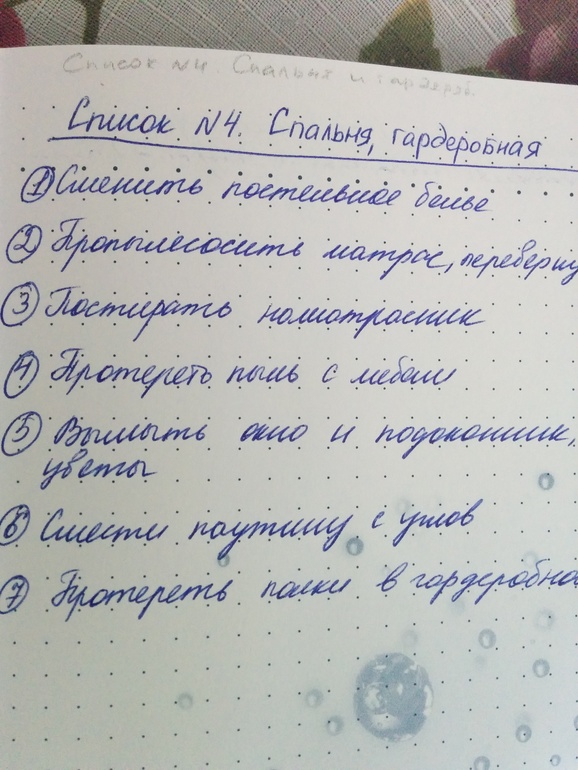 Список №4. Спальня и гардероб.
Список №4. Спальня, гардеробная
① Сменить постельное белье
② Пропылесосить матрас, переверну
③ Постирать наматрасник
④ Протереть пыль с мебели
⑤ Вымыть окно и подоконник,
цветы
⑥ Смести паутину с углов
⑦ Протереть полки в гардеробно